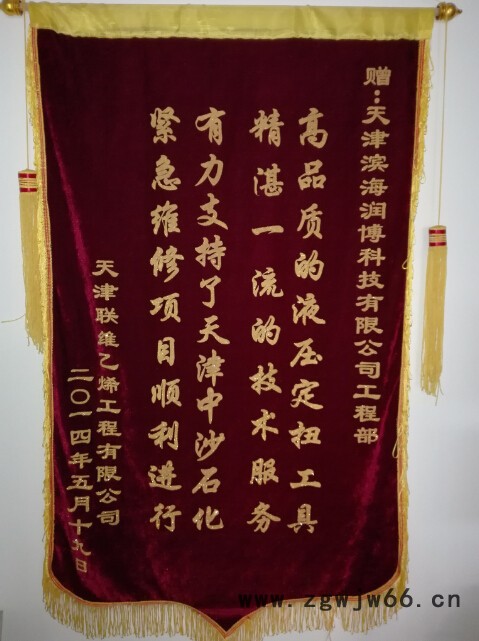 赠：天津滨海润博科技有限公司工程部
高品质的液压定扭工具
精湛一流的技术服务
有力支持了天津中沙石化
紧急维修项目顺利进行
天津联维乙烯工程有限公司
二〇一四年五月十九日
www.zgwjw66.cn